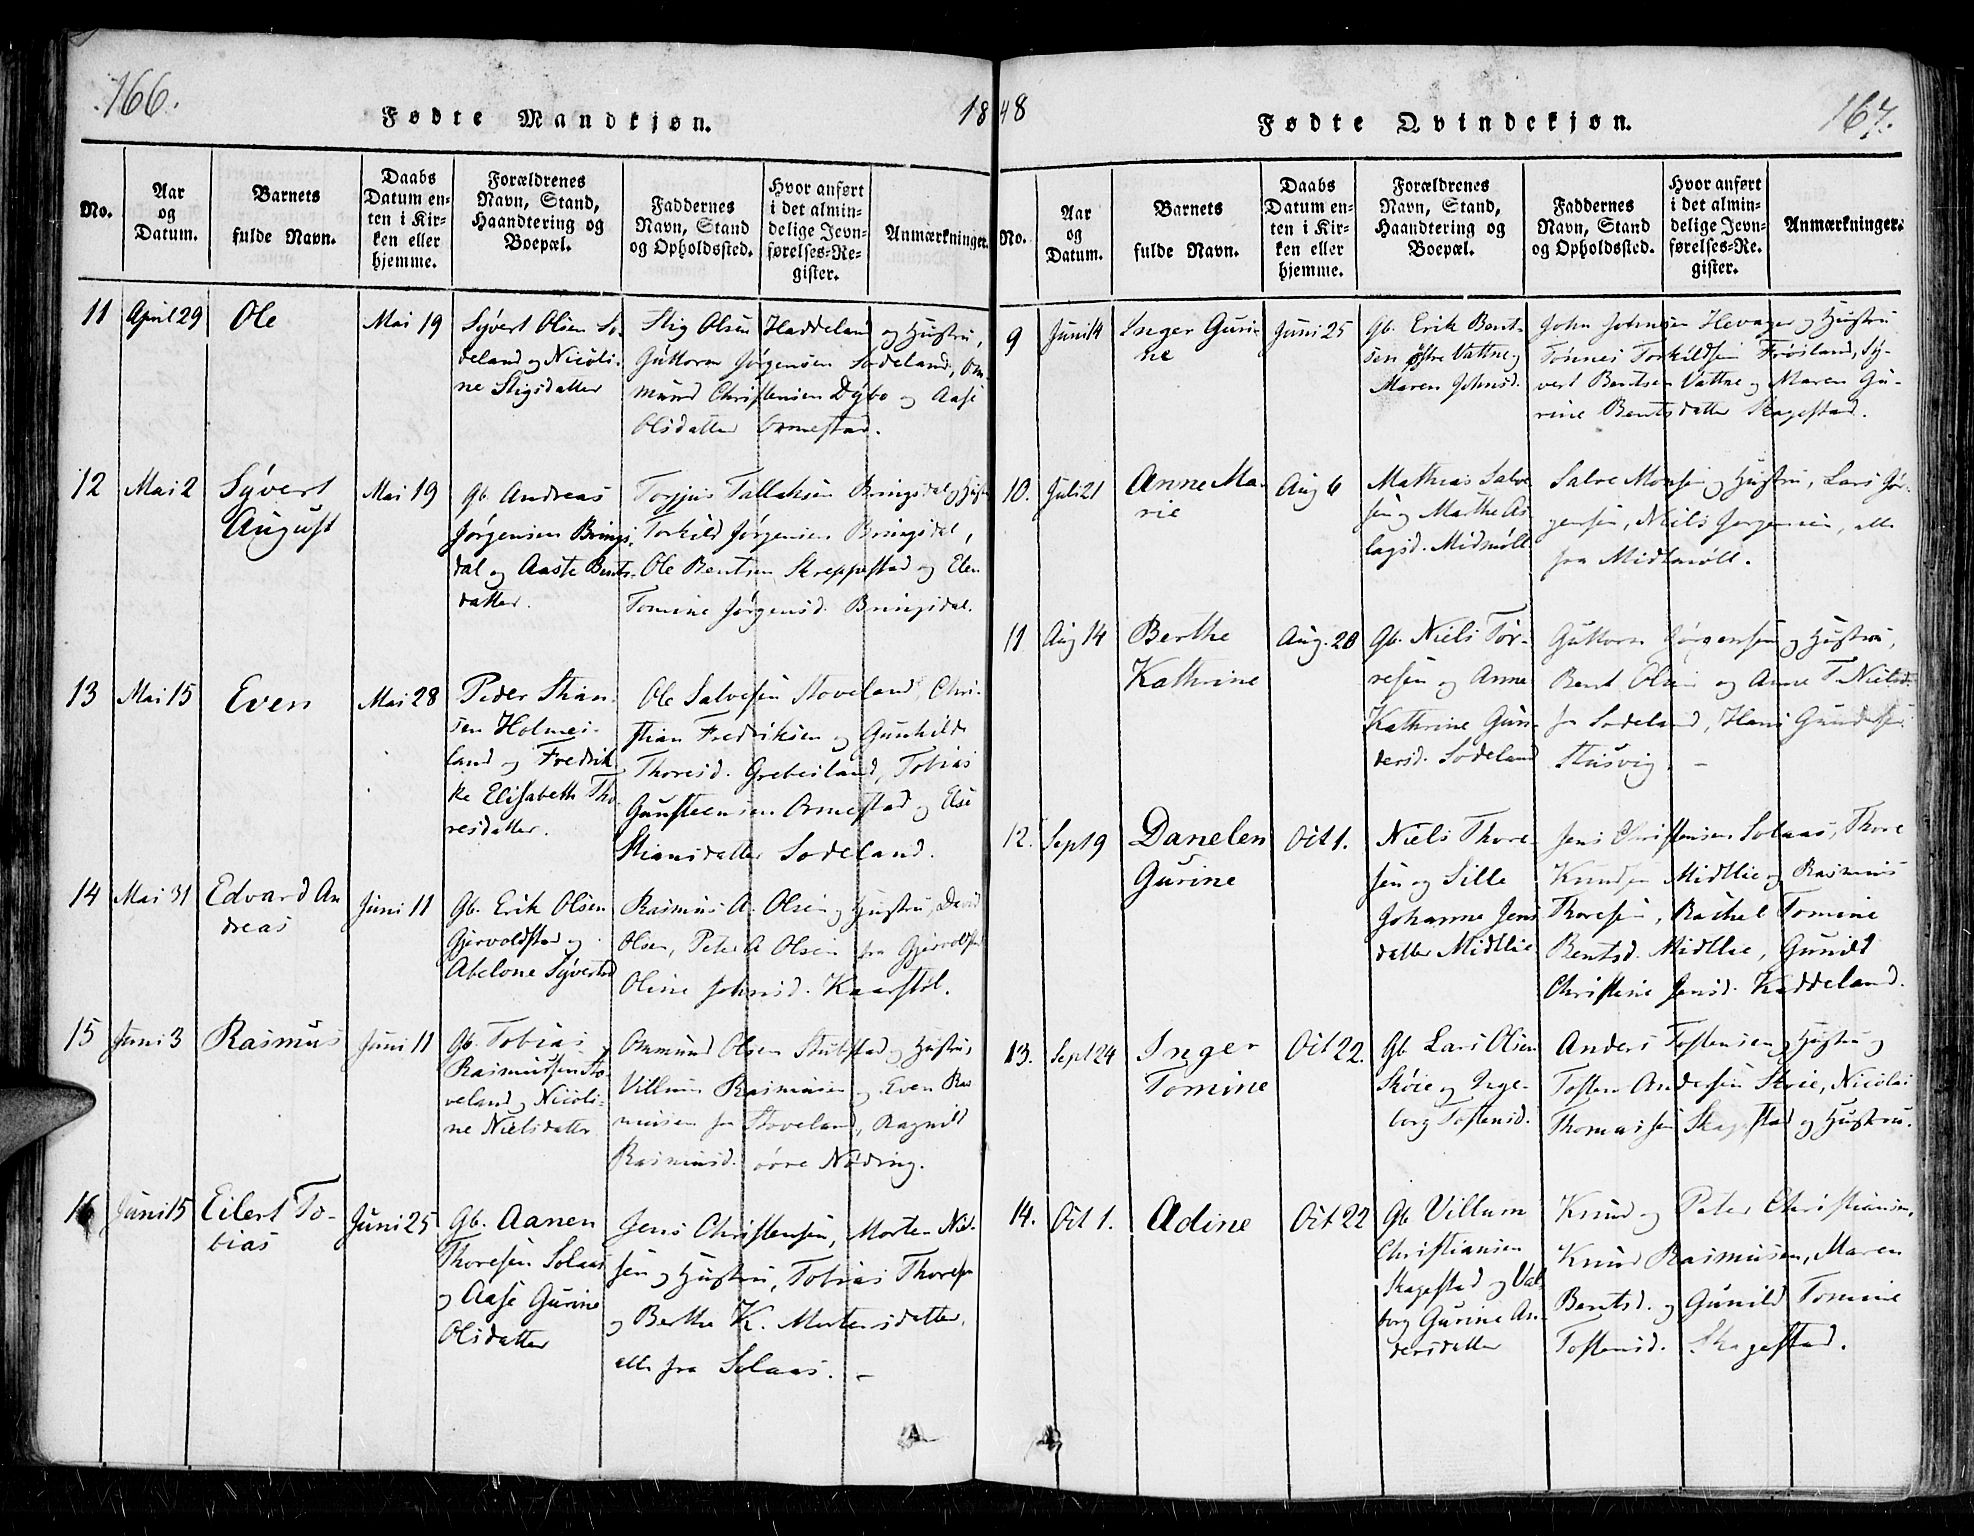 166.
Fødte Mandkjøn.
1848
No.
Aar og Datum.
Barnets fulde Navn.
Daabs Datum enten i Kirken eller hjemme.
Forældrenes Navn, Stand, Haandtering og Boepæl.
Faddernes Navn, Stand og Opholdssted.
Hvor anført i det almindelige Jevnførelses-Register.
Anmærkninger.
11
April 29
Ole
Mai 19
Syvert Olsen So-
deland og Nicoli-
ne Stigsdatter
Stig Olsen Haddeland og Hustru,
Guttorm Jørgensen Sodeland, Om-
mund Christensen Dybo og Aase
Olsdatter Ormestad.
12
Mai 2
Syvert
August
Mai 19
Gb. Andreas
Jørgensen Brings-
dal og Aaste Bents-
datter.
Torjus Tallaksen Bringsdal og Hustru
Torkild Jørgensen Bringsdal,
Ole Bentsen Skreppestad og Elen
Tomine Jørgensd. Bringsdal.
13
Mai 15
Even
Mai 28
Peder Stian-
sen Holmei-
land og Fredrik-
ke Elisabeth Tho-
resdatter.
Ole Salvesen Stoveland, Chri-
stian Fredriksen og Gunhilde
Thoresd. Grebesland, Tobias
Gunsteensen Ormestad og Else
Stiansdatter Sodeland.
14
Mai 31
Edvard An
dreas
Juni 11
Gb. Erik Olsen
Gjervoldstad og
Abelone Syvertsd
Rasmus A. Olsen og Hustru, David
Olsen, Peter A Olsen fra Gjervoldstad
Oline Johnsd. Kaarstøl.
15
Juni 3
Rasmus
Juni 11
Gb. Tobias
Rasmussen Sto-
veland og Nicoli-
ne Nielsdatter
Ommund Olsen Stubstad og Hustru,
Villum Rasmusen og Even Ras
musen fra Stoveland, Ragnild
Rasmusd. øvre Nøding.
16
Juni 15
Eilert To-
bias
Juni 25
Gb. Aanen
Thoresen Solaas
og Aase Gurine
Olsdatter
Jens Christensen, Morten Niel-
sen og Hustru, Tobias Thoresen
og Berthe K. Mortensdatter,
alle fra Solaas. –
167.
Fødte Qvindekjøn.
No.
Aar og Datum.
Barnets fulde Navn.
Daabs Datum enten i Kirken eller hjemme.
Forældrenes Navn, Stand, Haandtering og Boepæl.
Faddernes Navn, Stand og Opholdssted.
Hvor anført i det almindelige Jevnførelses-Register.
Anmærkninger.
9
Juni 14
Inger Guri-
ne
Juni 25
Gb. Erik Bent-
sen østre Vattne og
Maren Johnsd.
John Johnsen Hevager og Hustru
Tønnes Torkildsen Frøisland, Sy-
vert Bentsen Vattne og Maren Gu-
rine Bentsdatter Skagestad.
10.
Juli 21
Anne Ma-
rie
Aug 6
Mathias Salve
sen og Marthe As-
lagsd. Midmøll
Salve Monsen og Hustru, Lars Jør-
gensen, Niels Jørgensen, alle
fra Midtmøll.
11
Aug 14
Berthe
Kathrine
Aug. 20
Gb. Niels Tor-
resen og Anne
Kathrine Gun-
dersd. Sodeland
Guttorm Jørgensen og Hustru,
Bent Olsen og Anne T. Nielsd.
fra Sodeland, Hans Gundersen
Stusvig. –
12.
Sept 9
Danelen
Gurine
Oct 1.
Niels Thore-
sen og Sille
Johanne Jens
datter Midtlie
Jens Christensen Solaas, Thore
Knudsen Midtlie og Rasmus
Thoresen, Rachel Tomine
Bentsd. Midtlie, Gunild
Christine Jensd. Kaddeland.
13.
Sept 24
Inger
Tomine
Oct 22.
Gb Lars Olsen
Skøie og Inge-
borg Tostensd.
Anders Tostensen og Hustru og
Tosten Andersen Skøie, Nicolai
Thomassen Skagestad og Hustru.
14.
Oct 1.
Adine
Oct 22
Gb Villum
Christiansen
Skagestad og Val
borg Gurine An-
dersdatter
Knud og Peter Christiansen,
Knud Rasmusen, Maren
Bentsd. og Gunild Tomine
Tostensd. Skagestad.